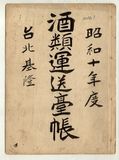 昭和十年度
酒類運送臺帳
台北基隆